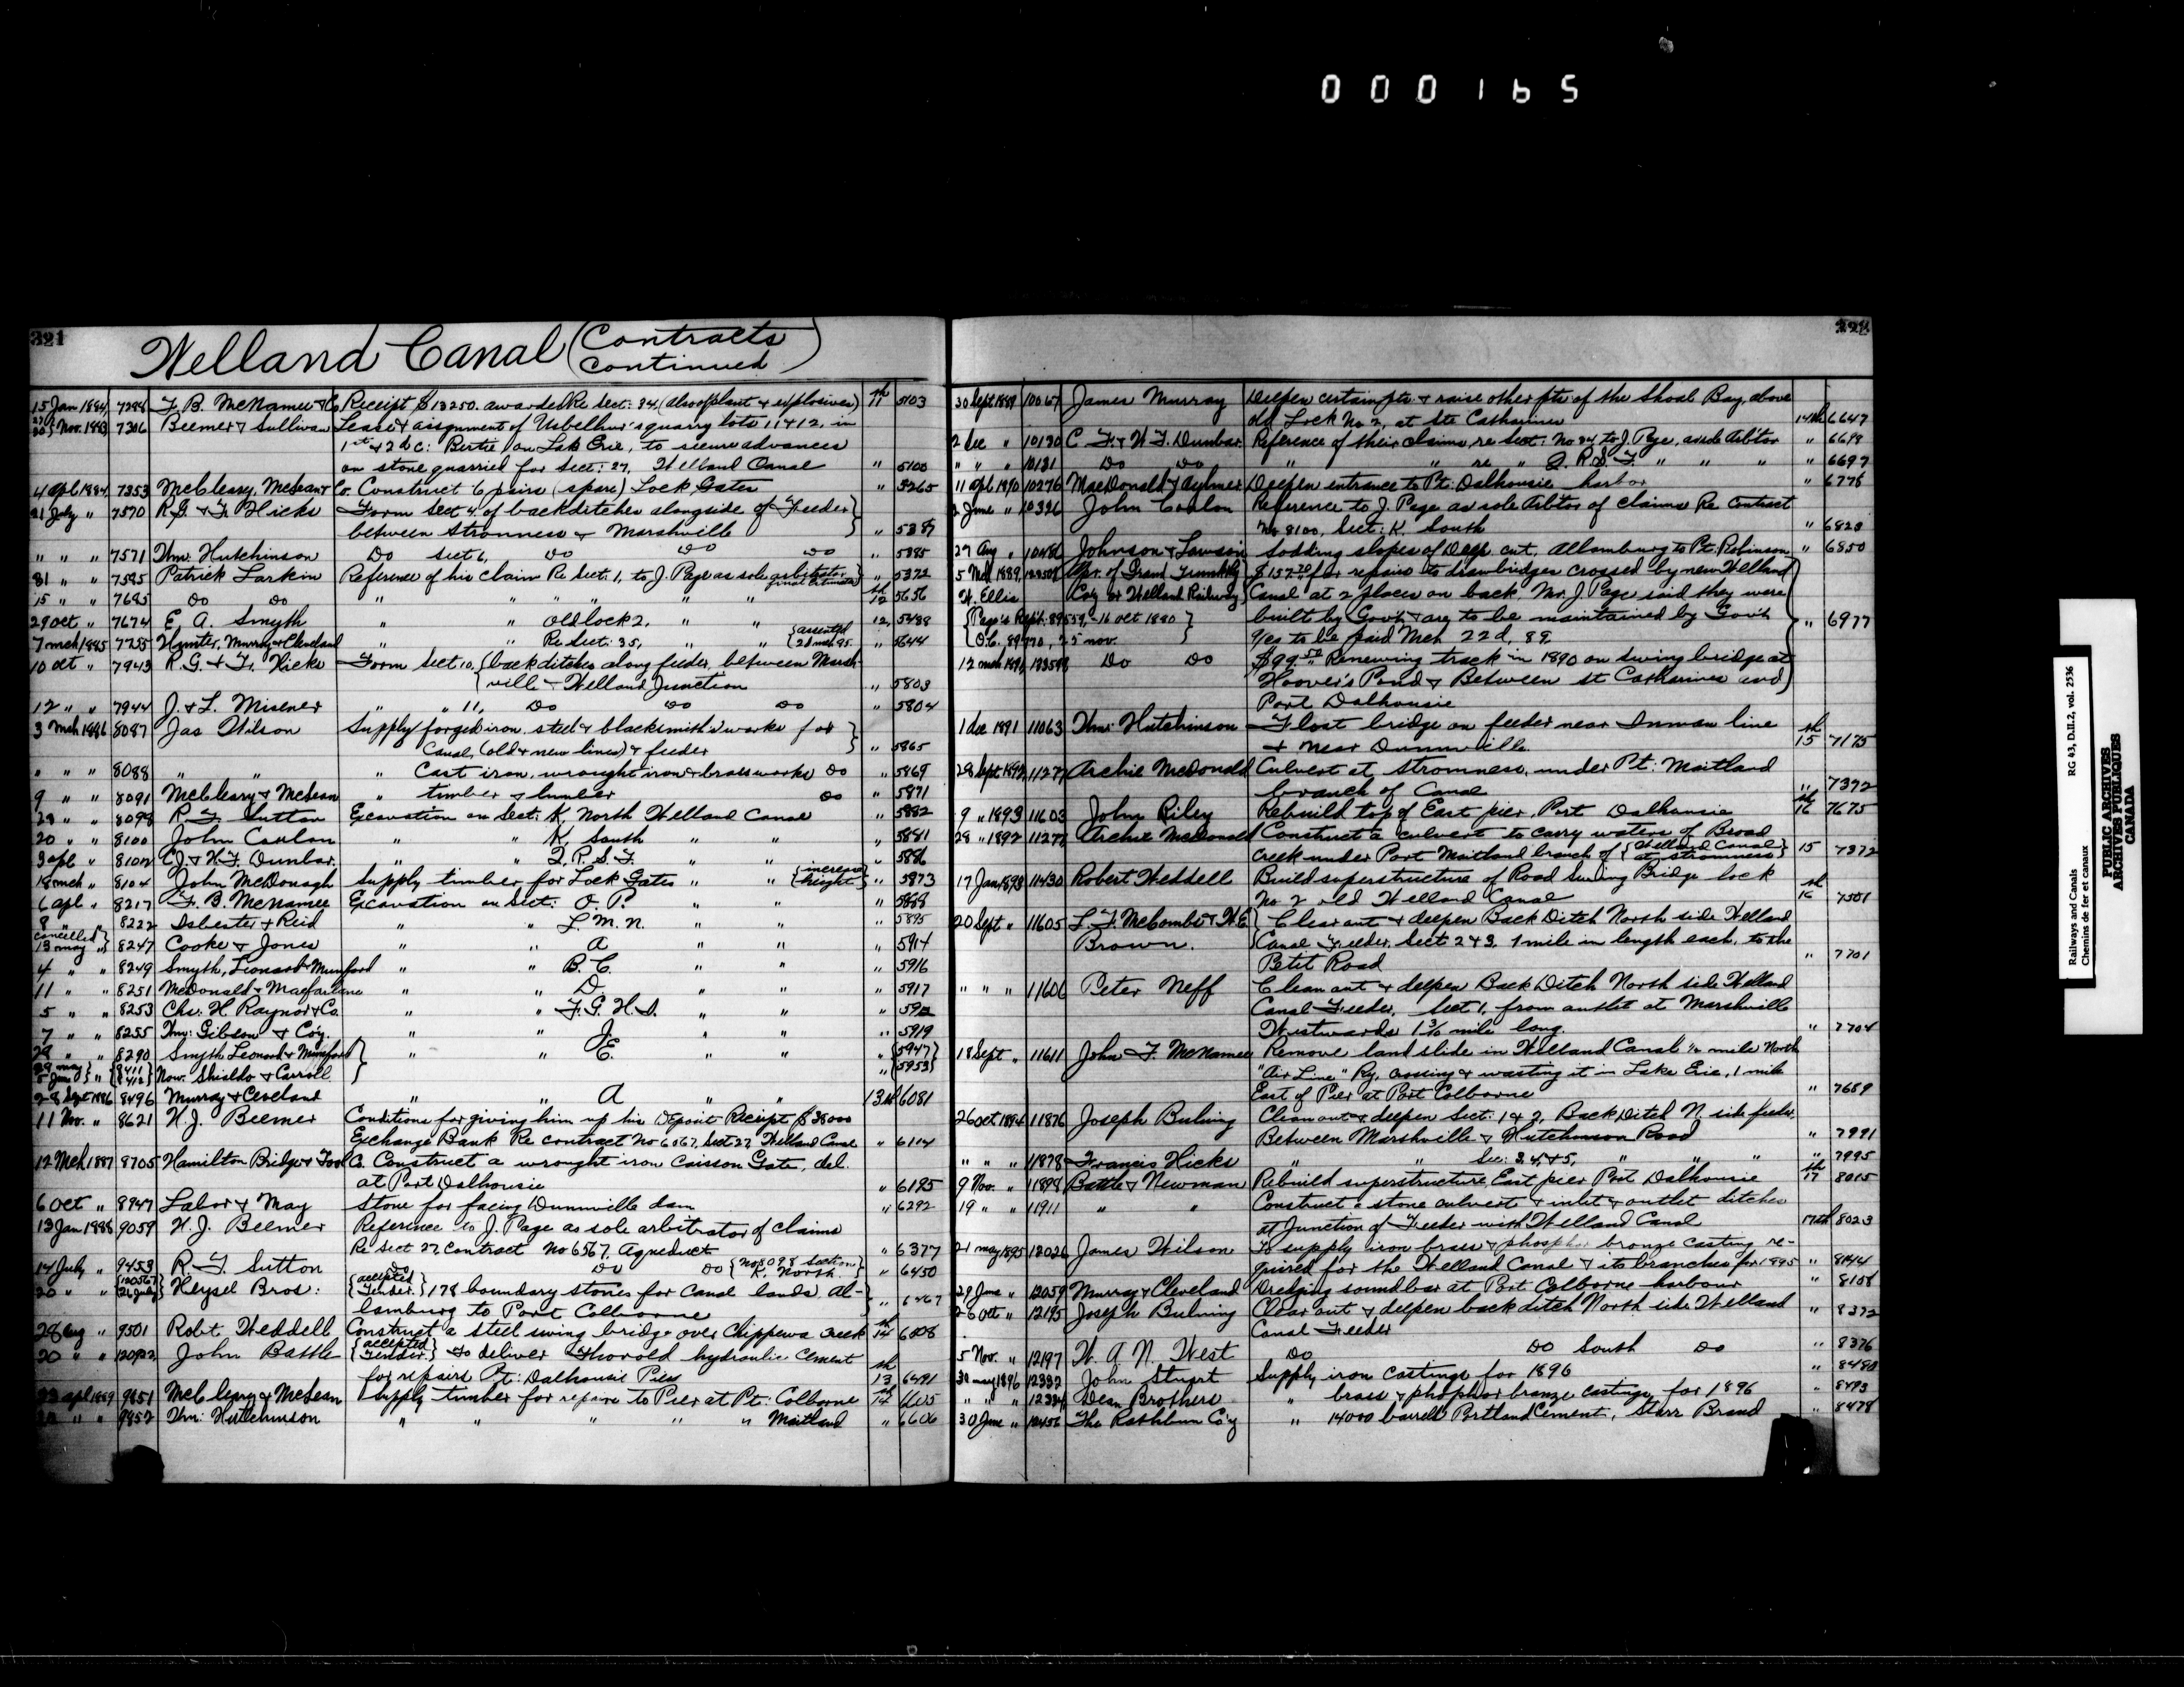 000165
321
Welland Canal (Contracts continued)
15 Jan 1884 7298 F. B. McNamee & Co Receipt $13250. awarded Re Sect: 34, (also plant & explosives) 11th 5103
30 Nov. 1883 7306 Beemer & Sullivan Lease & assignment of quarry lots 11 & 12, in
1st & 2d C: Bertie on Lake Erie, to secure advances
on stone quarried for Sect: 27, Welland Canal " 5100
4 apl 1884 7353 McCleary, McLean & Co. Construct 6 pairs (spare) Lock Gates " 5265
21 July " 7570 R.G. & F. Hicks Form Sect 4 of backditches alongside of Feeder
between Stromness & Marshville " 5387
" " " 7571 Wm: Hutchinson Do Sect 6, Do Do Do " 5385
31 " " 7595 Patrick Larkin Reference of his claim Re Sect: 1, to J. Page as sole arbitrator " 5372
15 " " 7685 Do Do " " " " " " final Estimate 12th 5656
29 oct " 7674 E. A. Smyth " " old lock 2, " " 12, 5488
7 mch 1885 7755 Hunter, Murray & Cleveland " " Re Sect: 35, " " " 5644
10 oct " 7943 R. G. & F. Hicks Form Sect 10, {back ditches along feeder, between Marsh-
ville & Welland Junction " 5803
12 " " 7944 J. & L. Misener " " 11, Do Do Do " 5804
3 mch 1886 8087 Jas Wilson Supply forged iron, steel & blacksmith's works for
Canal, (old & new lines) & feeder " 5865
" " " 8088 " " " Cast iron, wrought iron & brass works Do " 5869
9 " " 8091 McCleary & McLean " timber & lumber Do " 5871
29 " " 8098 R. F. Sutton Excavation on Sect: K, North Welland Canal " 5882
20 " " 8100 John Conlon " " K, South " " " 5881
3 apl " 8102 C.J. & W.F. Dunbar. " " Q. R. S. T. " " " 5886
18 mch " 8104 John McDonagh Supply timber for Lock Gates " " {increased height} " 5873
6 apl " 8217 F. B. McNamee Excavation on Sect: O. P. " " " 5888
8 " " 8222 Isbester & Reid " " L. M. N. " " " 5895
cancelled
13 may " 8247 Cooke & Jones " " A " " " 5914
4 " " 8249 Smyth, Leonard & Mumford " " B. C. " " " 5916
11 " " 8251 McDonald & Macfarlane " " D. " " " 5917
5 " " 8253 Chs: H Raynor & Co. " " F. G. H. I. " " "
7 " " 8255 Wm: Gibson & Coy. " " J. " " " 5919
29 " " 8290 Smyth Leonard & Mumford " " E. " " " {5947}
29 may 5 June " {8411 8412} Now. Shields & Carroll " {5953}
28 Sept 1886 8496 Murray & Cleveland " " A " " 13th 6081
11 Nov. " 8621 W. J. Beemer Conditions for giving him up his Deposit Receipt $38000
Exchange Bank Re contract No 6567, Sect 27 Welland Canal " 6114
12 Mch 1887 8705 Hamilton Bridge & Tool Co. Construct a wrought iron Caisson Gate, del.
at Port Dalhousie " 6195
6 oct " 8947 Labor & May Stone for facing Dunnville dam " 6292
13 Jan 1888 9059 W. J. Beemer Reference to J. Page as sole arbitrator of claims
Re Sect 27 Contract No 6567. Aqueduct " 6377
14 July " 9453 R. F. Sutton Do Do Do {No 8098 Section K. North} " 6450
20 " " {120567 26 July} Heysel Bros: {accepted Tender} 178 boundary stones for Canal lands Al-
lanburg to Port Colborne " 6467
28 aug " 9501 Robt Weddell Construct a steel swing bridge over Chippewa creek 14th 6508
20 " " 120922 John Battle {accepted Tender} to deliver Thorold hydraulic Cement
for repairs Pt: Dalhousie Piers 13th 6491
23 apl 1889 9851 McCleary & McLean Supply timber for repairs to Pier at Pt: Colborne 14th 6605
" " 9852 Wm: Hutchinson " " " " " Maitland " 6606
322
30 Sept 1889 10067 James Murray Deepen certain pts & raise other pts of the Shoal Bay, above
old Lock No 2, at Ste Catharines 14th 6647
2 Dec " 10130 C. F. & W. F. Dunbar. Reference of their claims, re Sect: No 34 to J. Page, as sole Arb'tor " 6698
" " " 10131 Do Do " " re " Q. R. S. T. " " " " 6697
11 apl 1890 10276 MacDonald & Aylmer Deepen entrance to Pt: Dalhousie harbor " 6778
2 June " 10326 John Conlon Reference to J. Page as sole Arb'tor of claims Re Contract
No 8100, Sect: K. South " 6820
27 Aug " 10486 Johnson & Lawson Sodding slopes of Deep cut, Allanburg to Pt: Robinson " 6850
5 Mch 1889, Apr. of Grand Trunk Ry $157.70 for repairs to drawbridges crossed by new Welland
W. Ellis Coy or Welland Railway, Canal at 2 places on back. Mr. J. Page said they were
{Page's Rept: 89559, 16 oct 1880} built by Gov't & are to be maintained by Gov't " 6977
{O.C. 89770, 25 nov. Yes to be paid Mch 22d, 89.
12 mch 1891, Do Do $99.50 Renewing track in 1890 on Swing bridge at
Hoover's Pond & Between St Catharines and
Port Dalhousie
1 dec 1891 11063 Wm: Hutchinson Float bridge on feeder near Inman line
& near Dunnville. 15th 7175
28 Sept 1892 11277 Archie McDonald Culvert at Stromness, under Pt: Maitland
branch of Canal " 7372
9 " 1893 11603 John Riley Rebuild top of East pier, Port Dalhousie 16th 7675
28 " 1892 11277 Archie McDonald Construct a culvert to carry waters of Broad
creek under Port Maitland branch of {Welland Canal at Stromness} 15 7372
17 Jan 1893 11430 Robert Weddell Build superstructure of Road Swing Bridge lock
No 2 old Welland Canal 16th 7501
20 Sept " 11605 L. F. McCombs & W.E. Clear out & deepen Back Ditch North side Welland
Brown. Canal Feeder, Sect 2 & 3. 1 mile in length each, to the
Petit Road " 7701
" " " 11606 Peter Neff Clean out & deepen Back Ditch North side Welland
Canal Feeder, Sect 1, from outlet at Marshville
Westwards mile long. " 7704
18 Sept " 11611 John F. McNamee Remove land slide in Welland Canal ½ mile North
"Air Line" Ry, crossing & wasting it in Lake Erie, 1 mile
East of Pier at Port Colborne " 7689
26 oct 1894 11876 Joseph Buhing Clean out & deepen Sect: 1 & 2, Back Ditch N. side feeder,
Between Marshville & Hutchinson Road " 7991
" " " 11878 Francis Hicks " " Sec: 3, 4, & 5, " " " " 7995
9 Nov. " 11898 Battle & Newman Rebuild superstructure East pier Port Dalhousie 17th 8015
19 " " 11911 " " Construct a stone culvert & inlet & outlet ditches
at Junction of Feeder with Welland Canal 17th 8023
21 may 1895 12026 James Wilson To supply iron brass & phosphor bronze casting re-
quired for the Welland Canal & its branches for 1895 " 8144
29 June " 12059 Murray & Cleveland Dredging sound bar at Port Colborne harbour " 8158
26 Oct " 12195 Joseph Buhning Clear out & deepen back ditch North side Welland
Canal Feeder " 8372
5 Nov. " 12197 W. A. N. West Do Do South Do " 8376
30 may 1896 12332 John Stuart Supply iron castings for 1896 " 8480
" " " 12334 Dean Brothers " brass & phosphor bronze castings for 1896 " 8493
30 June " 12456 The Rathbun Co'y " 14000 barrells Portland Cement, Starr Brand " 8478
Railways and Canals RG 43, D.II.2, vol. 2536
Chemins de fer et canaux
PUBLIC ARCHIVES
ARCHIVES PUBLIQUES
CANADA